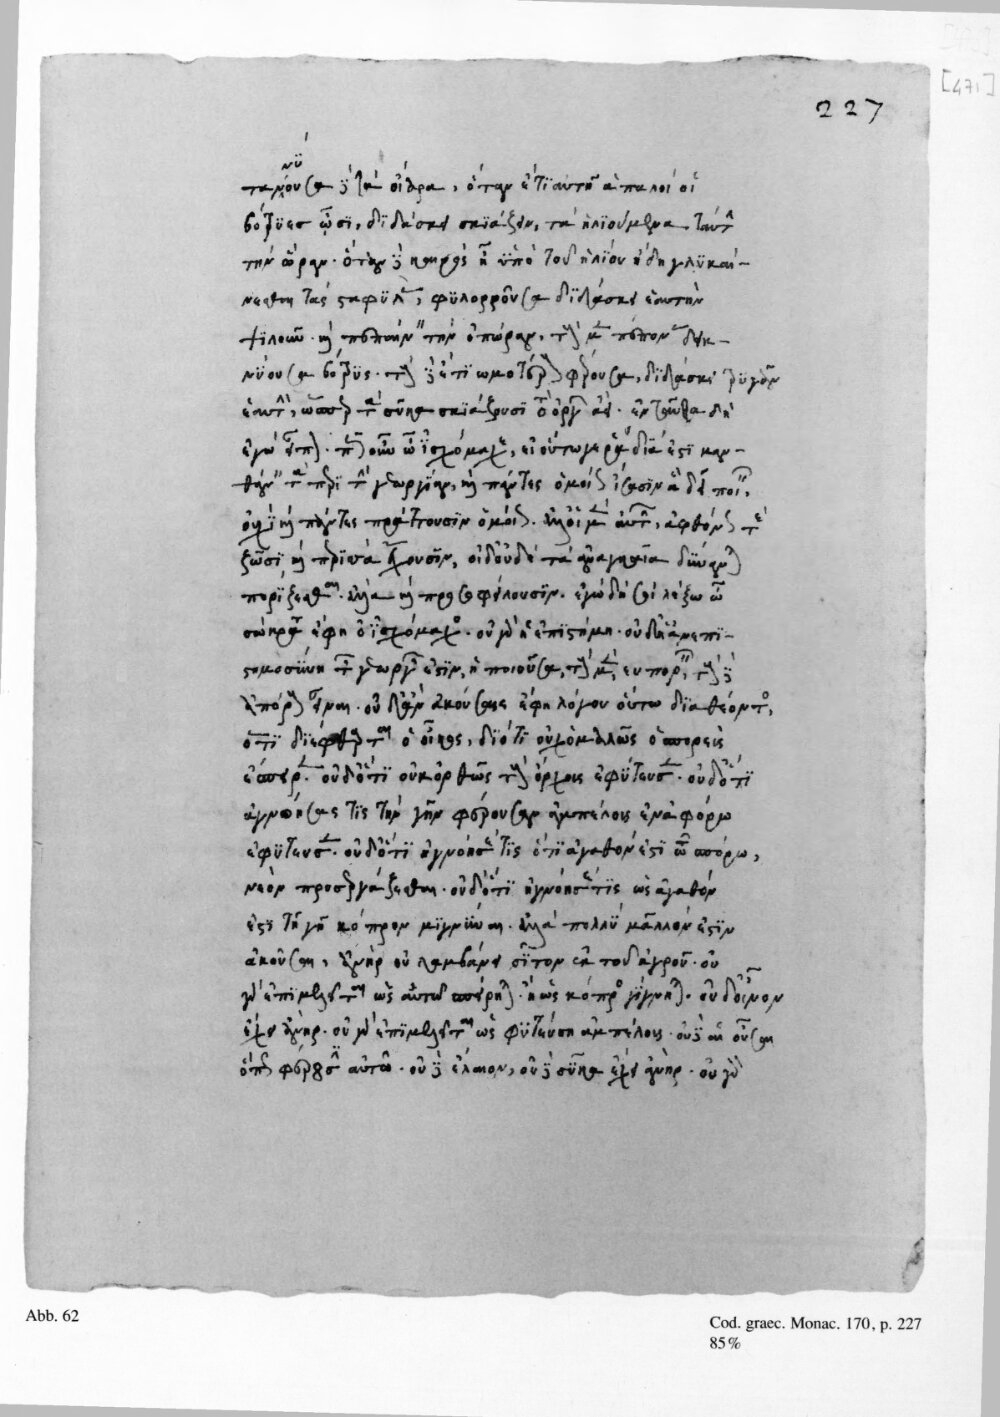 τανύουσα δὲ τὰ οἴναρα, ὅταν ἔτι αὐτῇ ἁπαλοὶ οἱ
βότρυες ὦσι, διδάσκει σκιάζειν, τὰ ἡλιούμενα ταύτην
τὴν ὥραν· ὅταν δὲ καιρὸς ᾖ ὑπὸ τοῦ ἡλίου ἤδη γλυκαί-
νεσθαι τὰς σταφυλὰς, φυλορροῦσα διδάσκει ἑαυτὴν
ψιλοῦν· καὶ πεπαίνειν τὴν ὀπώραν, τοὺς μὲν πέπονας δεικ-
νύουσα βότρυς· τοὺς δὲ ἔτι ὠμοτέρους φέρουσα, διδάσκει τρυγᾶν
ἑαυτὴν, ὥσπερ τὰ σῦκα σκιάζουσι τὸ ὀργῶν ἀεί· ἐνταῦθα δὴ
ἐγὼ εἶπον· πῶς οὖν ὦ ἰσχόμαχε, εἰ οὕτω γε ῥάδιά ἐστι μαν-
θάνειν τὰ περὶ τὴν γεωργίαν, καὶ πάντες ὁμοίως ἴσασιν ἃ δεῖ ποιεῖν,
οὐχὶ καὶ πάντες πράττουσιν ὁμοίως· ἀλλ' οἱ μὲν αὐτῶν, ἀφθόνως τὲ
ζῶσι καὶ περισσὰ ἔχουσιν, οἱ δ' οὐδὲ τὰ ἀναγκαῖα δύνανται
πορίζεσθαι· ἀλλὰ καὶ προσοφείλουσιν· ἐγὼ δή σοι λέξω ὦ
σώκρατες ἔφη ὁ ἰσχόμαχος· οὐ γὰρ ἡ ἐπιστήμη· οὐδ' ἡ ἀνεπι-
στημοσύνη τῶν γεωργῶν ἐστὶν, ἡ ποιοῦσα, τοὺς μὲν, εὐπορεῖν, τοὺς δὲ
ἀπόρους εἶναι· οὐδ' ἂν ἀκούσαις ἔφη λόγου οὕτω διαθέοντος,
ὅτι διέφθαρται ὁ οἶκος, διότι οὐχ ὁμαλῶς ὁ σπορεὺς
ἔσπειρεν· οὐδ' ὅτι οὐκ ὀρθῶς τοὺς ὄρχους ἐφύτευσεν· οὐδ' ὅτι
ἀγνοήσας τὶς τὴν γῆν φέρουσαν ἀμπέλους ἐν ἀφόρω
ἐφύτευσεν· οὐδ' ὅτι ἠγνόησέ τις ὅτι ἀγαθόν ἐστι τῶ σπόρω,
νεὸν προσεργάζεσθαι· οὐδ' ὅτι ἠγνόησέ τις ὡς ἀγαθόν
ἐστι τῇ γῇ κόπρον μιγνύναι· ἀλλὰ πολλὺ μᾶλλον ἐστὶν
ἀκοῦσαι, ἁνὴρ οὐ λαμβάνει σῖτον ἐκ τοῦ ἀγροῦ· οὐ
γὰρ ἐπιμελεῖται ὡς αὐτῶ σπείρηται· ἢ ὡς κόπρος γίγνηται· οὐδ' οἶνον
ἔχει ἁνήρ· οὐ γὰρ ἐπιμελεῖται ὡς φυτεύση ἀμπέλους· οὐδὲ αἱ οὖσαι
ὅπως φέρουσιν αὐτῶ· οὐδὲ ἔλαιον, οὐδὲ σῦκα ἔχει ἁνήρ· οὐ γὰρ
227
[471]
Abb. 62
Cod. graec. Monac. 170, p. 227
85%